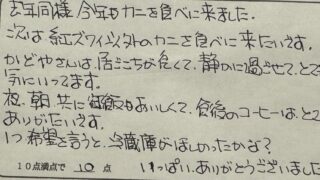 去年同様、今年もカニを食べに来ました。
次は紅ズワイ以外のカニを食べに来たいです。
かどやさんは、居ごこちが良くて、静かに過ごせて、とても
気にいってます。
夜、朝共に御飯もおいしくて、食後のコーヒーは、とても
ありがたいです。
1つ希望を言うと、冷蔵庫がほしかったかな?
10点満点で 10 点 いっぱい、ありがとうございました